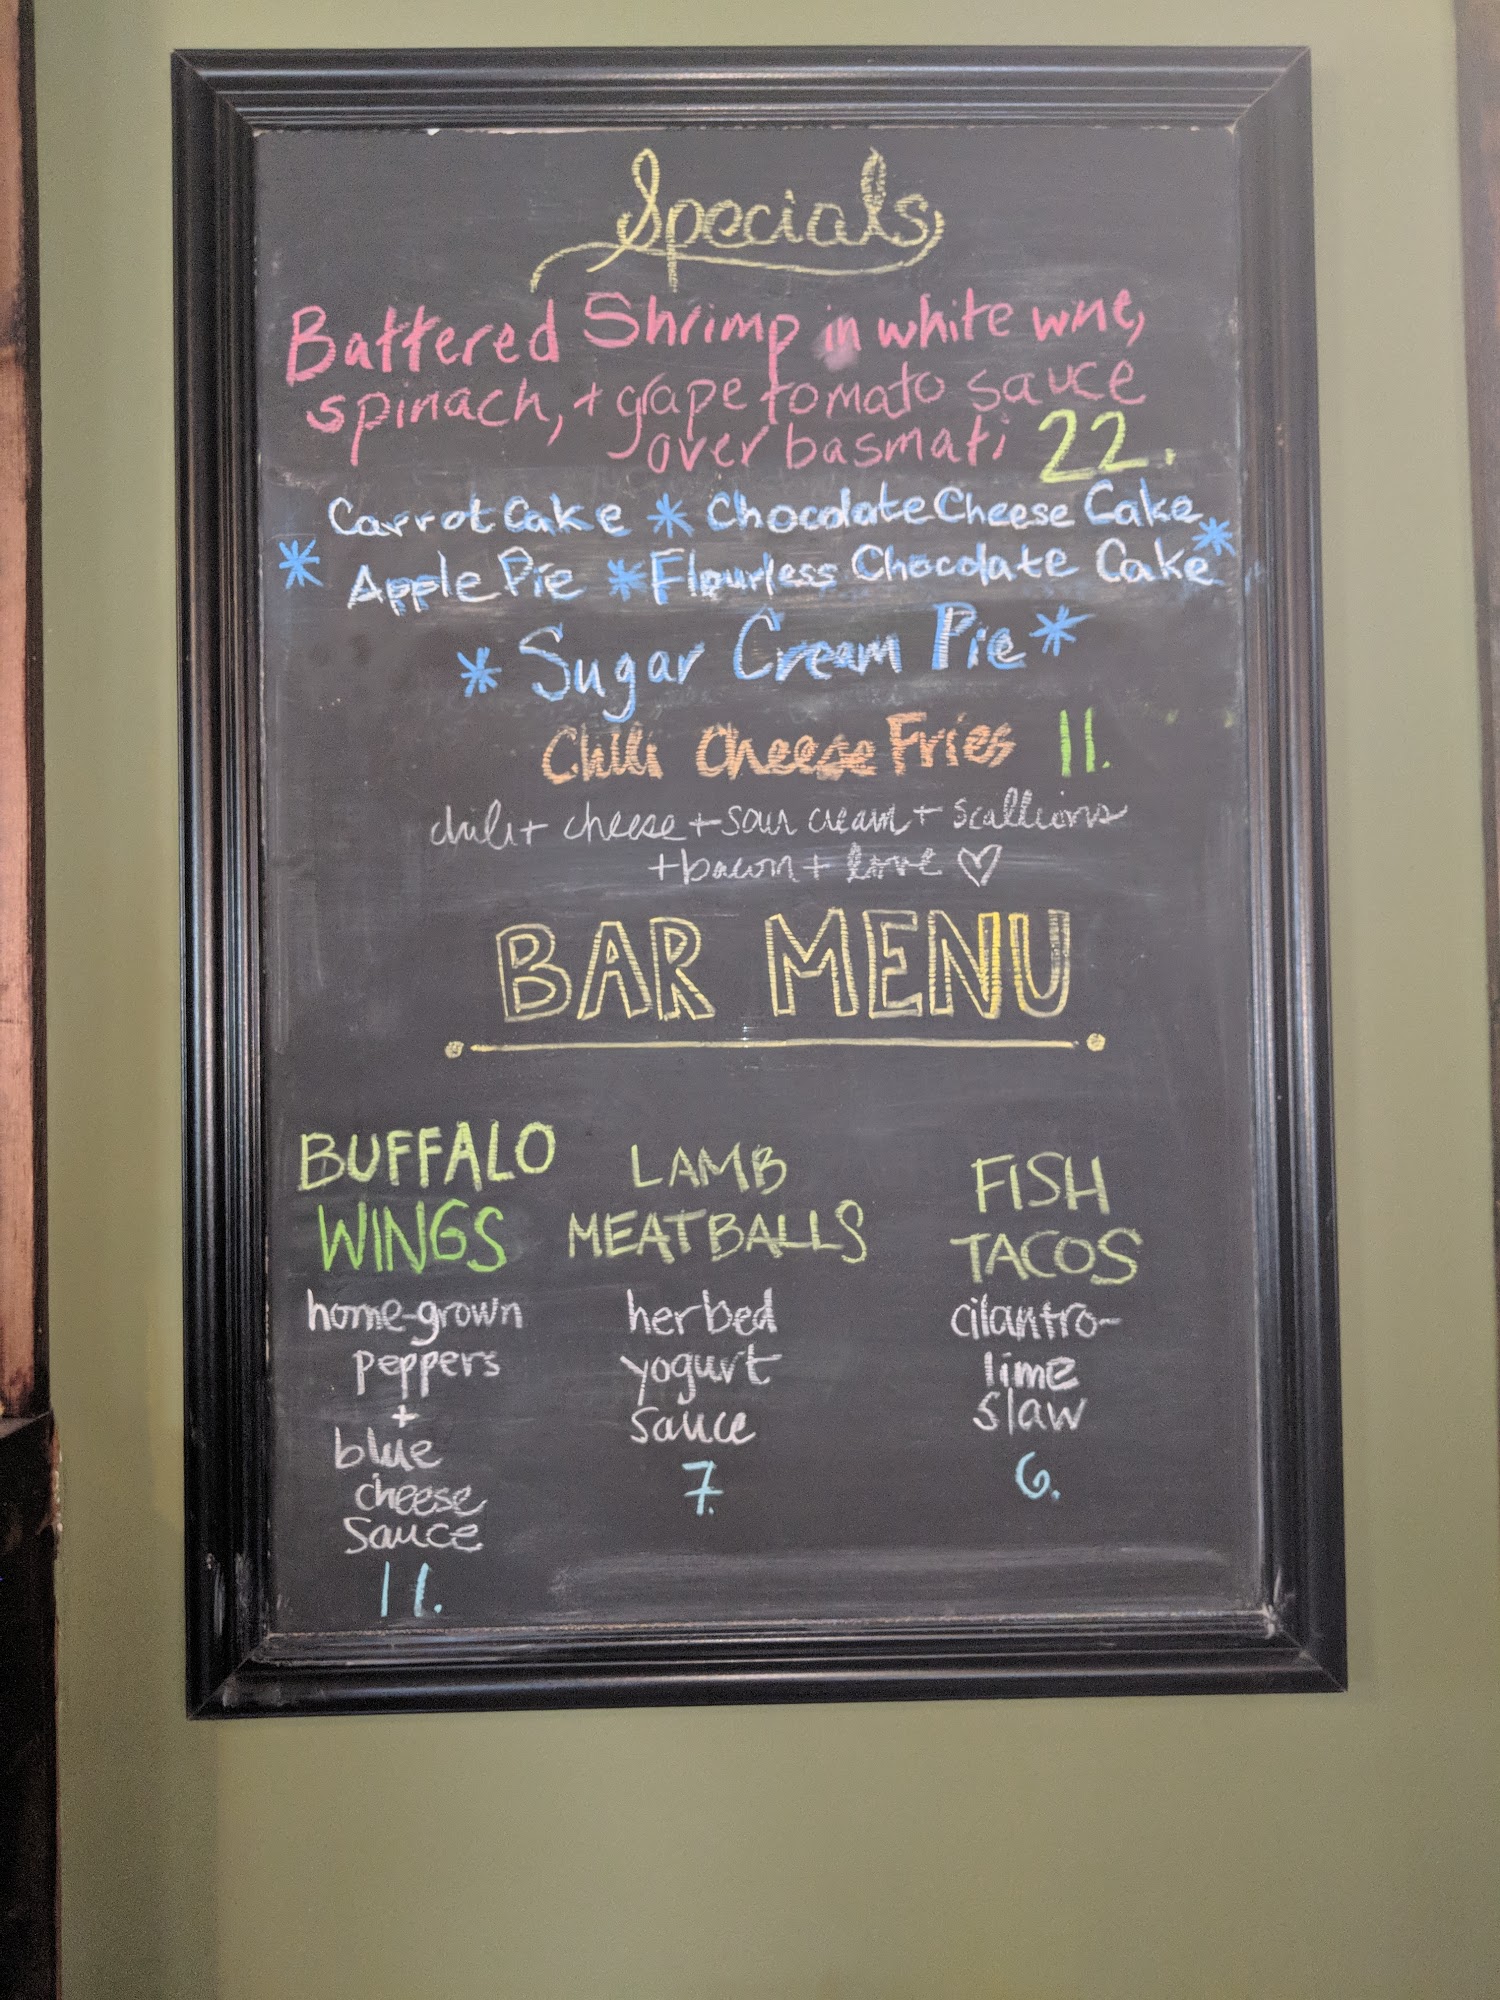 Specials
Battered Shrimp in white wine,
spinach, + grape tomato sauce
over basmati 22.
Carrot Cake * Chocolate Cheese Cake *
* Apple Pie * Flourless Chocolate Cake
* Sugar Cream Pie *
Chili Cheese Fries 11.
chili + cheese + sour cream + scallions
+ bacon + love ♡
BAR MENU
BUFFALO
WINGS
home-grown
peppers
+
blue
cheese
sauce
11.
LAMB
MEATBALLS
herbed
yogurt
sauce
7.
FISH
TACOS
cilantro-
lime
slaw
6.